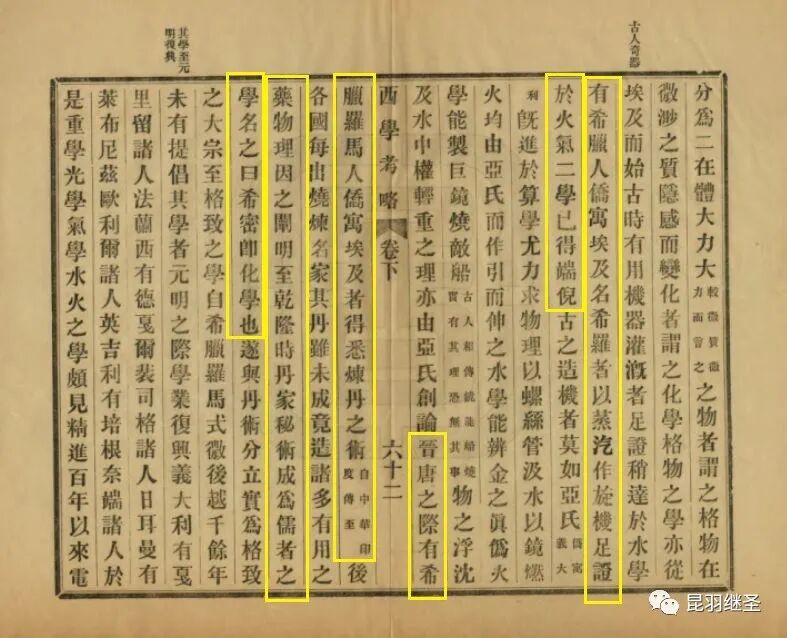 古人奇器
分爲二在體大力大較微質微力而言之之物者謂之格物在
微渺之質隱感而變化者謂之化學格物之學亦從
埃及而始古時有用機器灌漑者足證稍達於水學
有希臘人僑寓埃及名希羅者以蒸汽作旋機足證
於火氣二學已得端倪古之造機者莫如亞氏僑寓義大
利旣進於算學尤力求物理以螺絲管汲水以鏡燃
火均由亞氏而作引而伸之水學能辨金之眞僞火
學能製巨鏡燒敵船古人相傳能船燒實有其理恐無其事物之浮沈
及水中權輕重之理亦由亞氏創論晉唐之際有希
西學考略 卷下 六十二
臘羅馬人僑寓埃及者得悉煉丹之術自中華印度傳至後
各國每出燒煉名家其丹雖未成竟造諸多有用之
藥物理因之闡明至乾隆時丹家秘術成爲儒者之
學名之曰希密卽化學也遂與丹術分立實爲格致
之大宗至格致之學自希臘羅馬式微後越千餘年
未有提倡其學者元明之際學業復興義大利有戛
里留諸人法蘭西有德戛爾裴司格諸人日耳曼有
萊布尼茲歐利爾諸人英吉利有培根奈端諸人於
是重學光學氣學水火之學頗見精進百年以來電
其學至元明復興
昆羽继圣